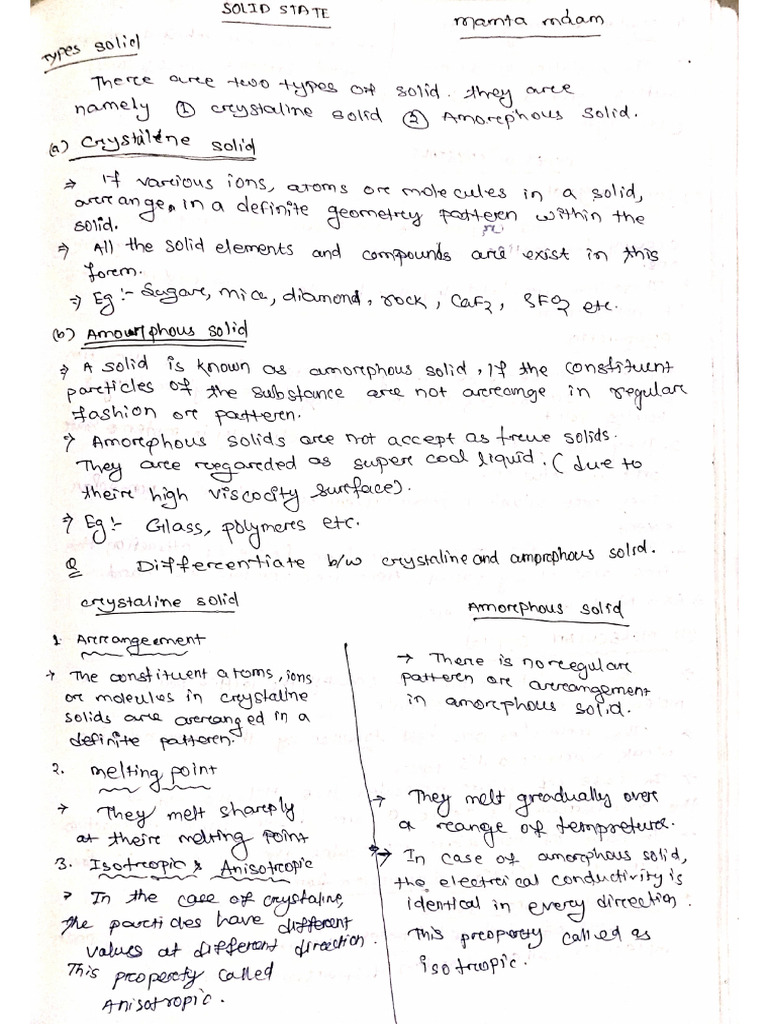 SOLID STATE
Mamta mdam
Types solid
There are two types of solid. they are
namely ① crystaline solid ② Amorphous solid.
(a) Crystalene solid
⇒ If various ions, atoms or molecules in a solid,
arrange in a definite geometry pattern within the
solid.
⇒ All the solid elements and compounds are exist in this
form.
⇒ Eg :- Sugar, mica, diamond, rock, CaF2, SFO2 etc.
(b) Amourphous solid
⇒ A solid is known as amorphous solid, If the constituent
particles of the substance are not arrange in regular
fashion or pattern.
⇒ Amorphous solids are not accept as true solids.
They are regarded as super cool liquid. ( due to
their high viscocity surface).
⇒ Eg :- Glass, polymers etc.
Q Differentiate b/w crystaline and amorphous solid.
crystaline solid
Amorphous solid
1. Arrangeement
→ The constituent atoms, ions
or molecules in crystaline
solids are arranged in a
definite pattern.
→ There is no regular
pattern or arrangement
in amorphous solid.
2. Melting point
→ They melt sharply
at their melting point
→ They melt gradually over
a range of tempreture.
3. Isotropic & Anisotropic
→ In the case of crystaline,
the particles have different
values at different direction.
This property called
Anisotropic.
→ In case of amorphous solid,
the electrical conductivity is
identical in every direction.
This property called as
isotropic.